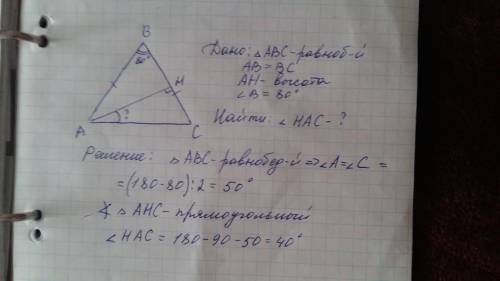 B
80°
H
?
A
C
Дано: △ABC-равноб-й
AB=BC
AH-высота
∠B=80°
Найти: ∠HAC-?
Решение: △ABC-равнобед-й=>∠A=∠C=
=(180-80):2=50°
∢ △AHC-прямоугольный
∠HAC=180-90-50=40°